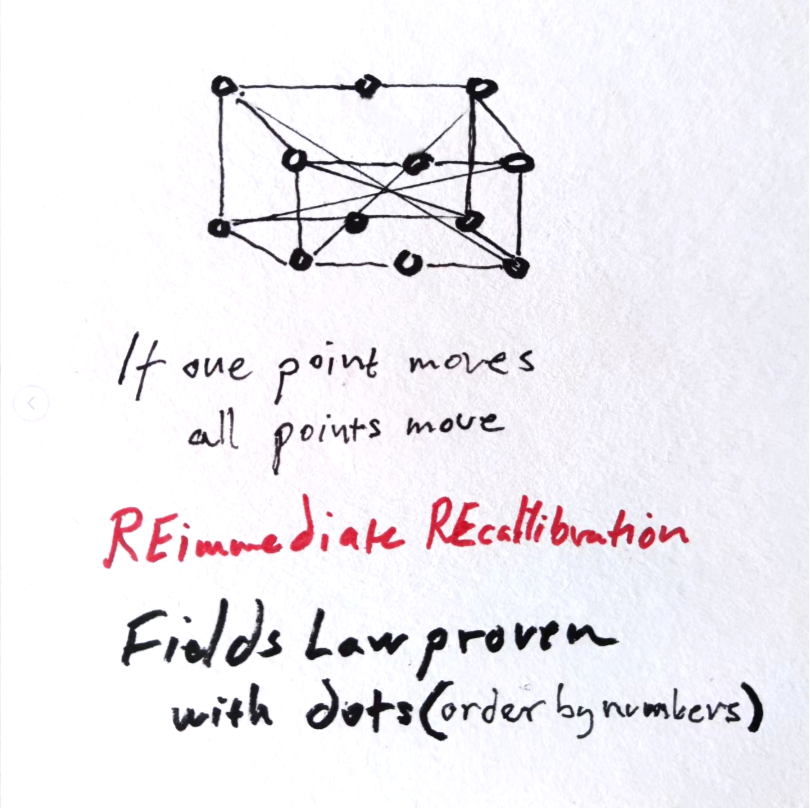 If one point moves
all points move
REimmediate REcallibration
Fields Law proven
with dots (order by numbers)